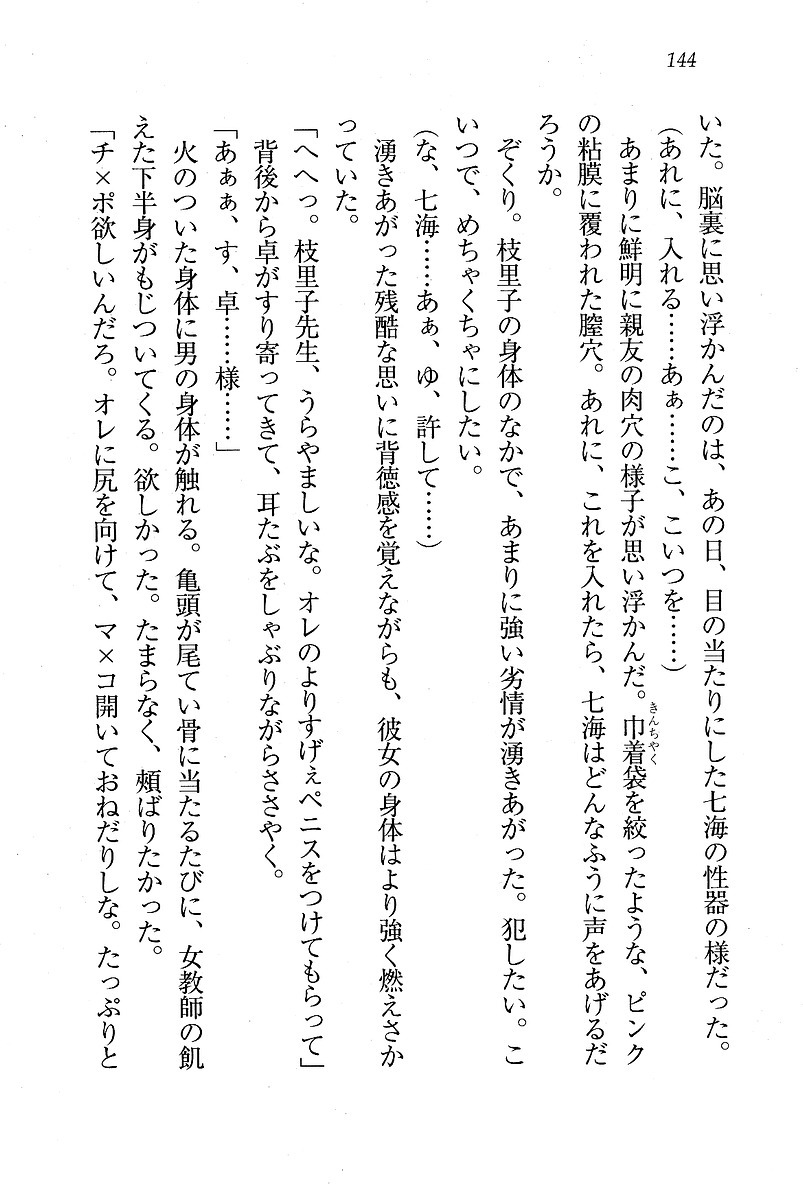 144
いた。脳裏に思い浮かんだのは、あの日、目の当たりにした七海の性器の様だった。
(あれに、入れる……あぁ……こ、こいつを……)
あまりに鮮明に親友の肉穴の様子が思い浮かんだ。巾着袋を絞ったような、ピンク
きんちゃく
の粘膜に覆われた膣穴。あれに、これを入れたら、七海はどんなふうに声をあげるだ
ろうか。
ぞくり。枝里子の身体のなかで、あまりに強い劣情が湧きあがった。犯したい。こ
いつで、めちゃくちゃにしたい。
(な、七海……あぁ、ゆ、許して……)
湧きあがった残酷な思いに背徳感を覚えながらも、彼女の身体はより強く燃えさか
っていた。
「へへっ。枝里子先生、うらやましいな。オレのよりすげぇペニスをつけてもらって」
背後から卓がすり寄ってきて、耳たぶをしゃぶりながらささやく。
「あぁぁ、す、卓……様……」
火のついた身体に男の身体が触れる。亀頭が尾てい骨に当たるたびに、女教師の飢
えた下半身がもじついてくる。欲しかった。たまらなく、頰ばりたかった。
「チ×ポ欲しいんだろ。オレに尻を向けて、マ×コ開いておねだりしな。たっぷりと